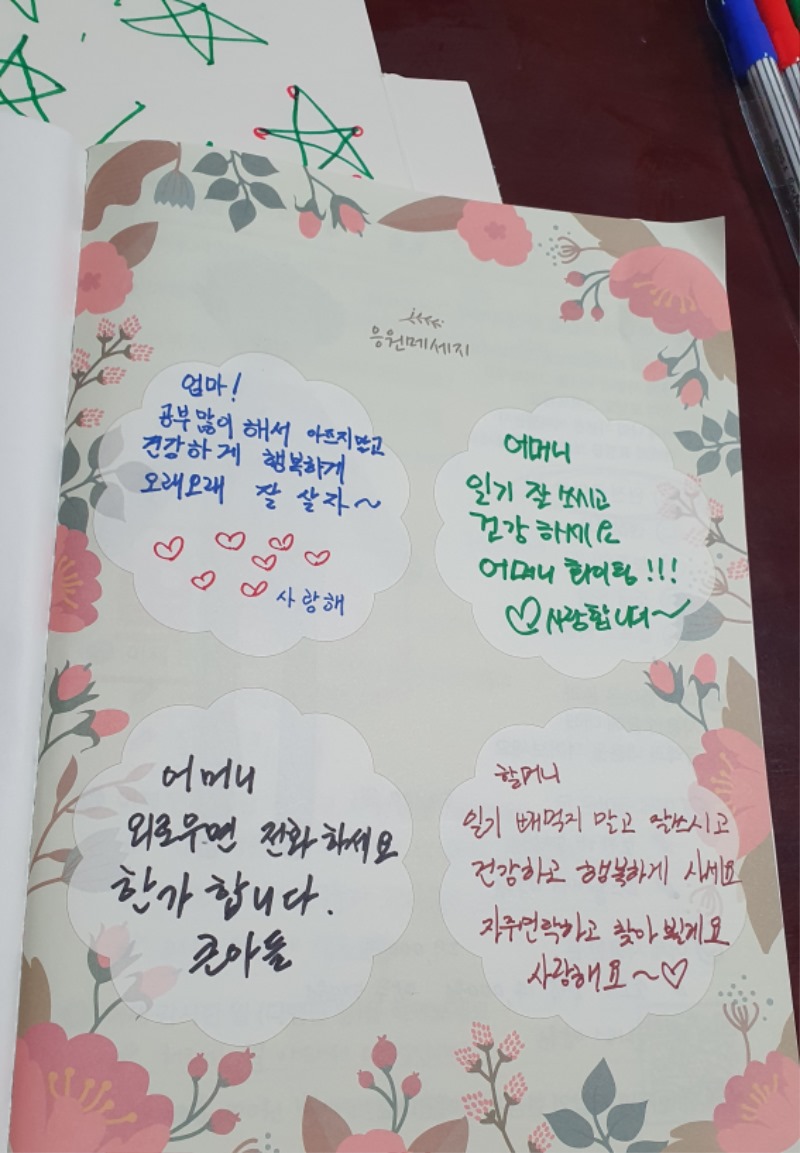 응원메세지
엄마!
공부 많이 해서 아프지말고
건강하게 행복하게
오래오래 잘 살자~
사랑해
어머니
일기 잘 쓰시고
건강 하세요
어머니 화이팅!!!
♡사랑합니다~
어머니
외로우면 전화 하세요
한가 합니다.
큰아들
할머니
일기 빼먹지 말고 잘쓰시고
건강하고 행복하게 사세요
자주연락하고 찾아뵐게요
사랑해요~♡